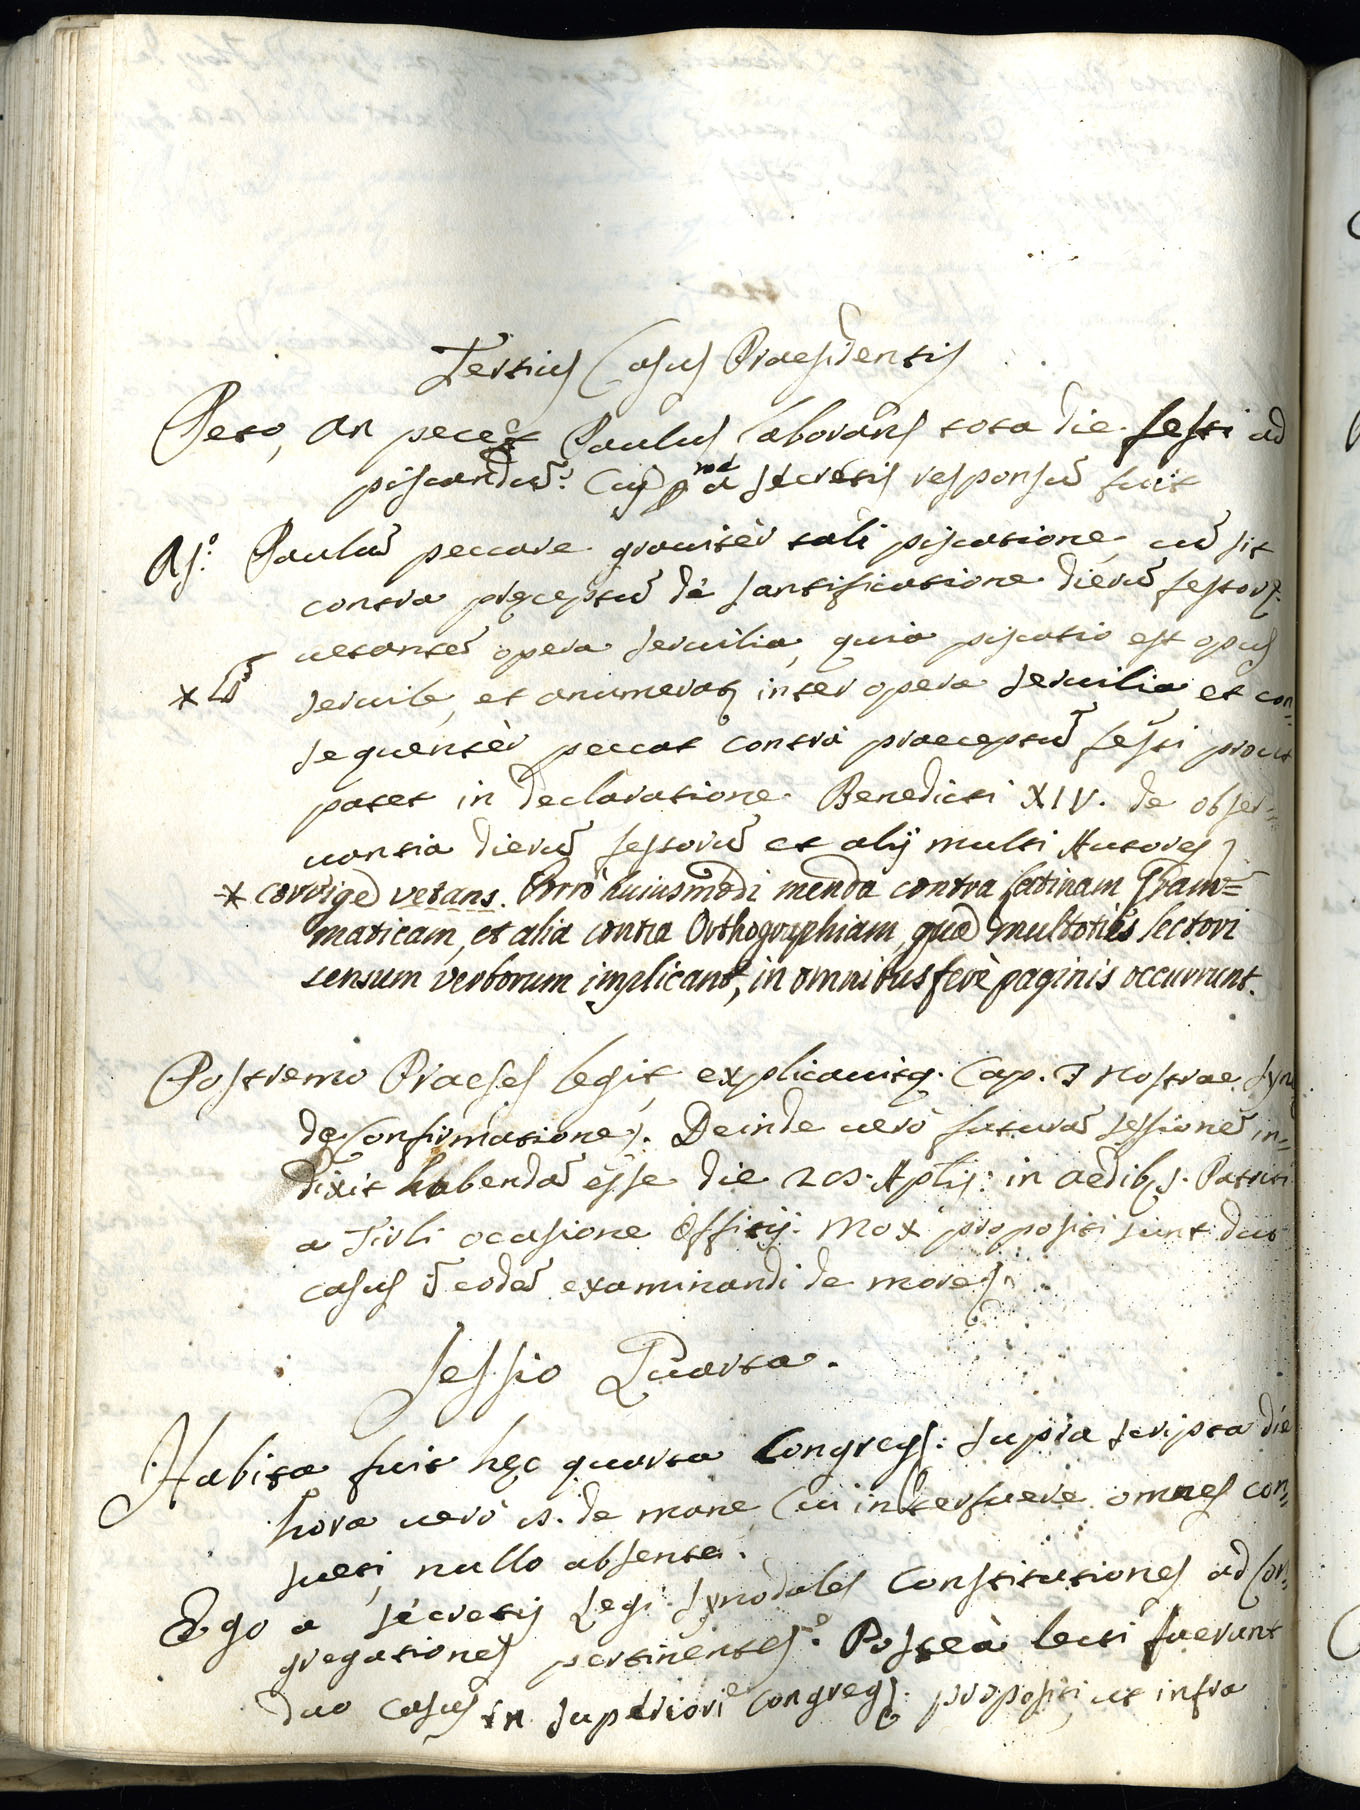 Tertius Casus Praesidentis
Peto, an peccet Paulus laborans tota die festi ad
piscandū? Cui p a secretis responsū fuit
Rs.º Paulū peccare grauitèr tali piscatione, cū sit
contra pręceptū de santificatione dierū festorꝝ
uetantē opera seruilia, quia piscatio est opus
* seruile, et anumeratꝫ intèr opera seruilia et con=
sequentèr peccat contra praeceptū festi prout
patet in declaratione Benedicti XIV. de obser=
uantia dierū festorū et alij multi Autores
* corrige vetans. Porrò huiusmodi menda contra Latinam Gram=
maticam, et alia contra Orthographiam, quae multoties lectori
sensum verborum implicant, in omnibus ferè paginis occurrunt.
Postremo Praeses legit, explicauitq. Cap. 3 nostrae Syn
de Confirmatione. Deinde uerò futurā sessionē in=
dixit habendā esse die 20. Aplis: in aedibꝫ. Patriti
a Tivli ocasione Offitij. Mox propositi sunt duo
casus ī eodē examinandi de more.
Sessio Quarta.
Habita fuit hęc quarta Congregs: supra scripta die
hora uerò 15. de mane Cui interfuere omnes con=
sueti, nullo absente.
Ego a secretis Legi Synodales Constitutiones ad Con=
gregationes pertinentes. Posteà lecti fuerunt
duo casus in superiori Congregs: propositi ut infra